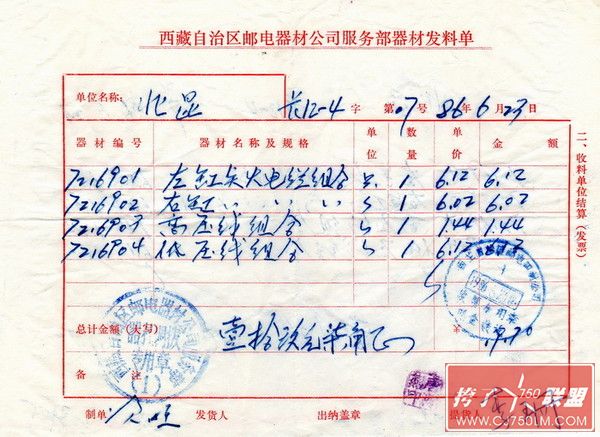 西藏自治区邮电器材公司服务部器材发料单
单位名称: 字 第07号 86年6月23日
器材编号 器材名称及规格 单位 数量 单价 金额
7216901 左缸尖火电缆组合 1 6.12 6.12
7216902 右缸 〃 〃 〃 〃 1 6.02 6.02
7216903 高压线组合 〃 1 1.44 1.44
7216904 低压线组合 〃 1
总计金额(大写) 壹拾玖元柒角正 19.70
备注
制单 发货人 出纳盖章 提货人
二、收料单位结算(发票)
西藏自治区邮电器材公司服务部
(1)
挎子750联盟
www.CJ750LM.com